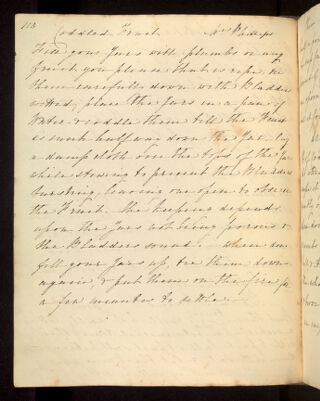 113
Coddled Fruit Mrs Phillips
Fill your Jars with plumbs or any
fruit you please that is ripe, tie
them carefully down with Bladders
wetted, place the Jars in a pan of
Water & coddle them till the Fruit
is sunk half way down the Jar, lay
a damp cloth over the tops of the Jars
while stewing to prevent the Bladders
bursting, leaving one open to observe
the Fruit. The keeping depends
upon the Jars not being porous &
the Bladders sound. – when done
fill your Jars up, tie them down
again, & put them on the fire for
a few minutes to settle. –